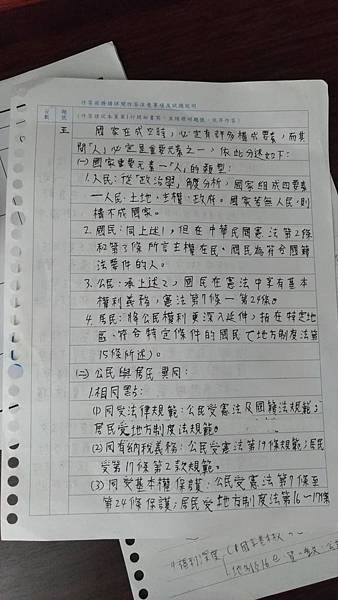 作答前應請詳閱作答注意事項及試題說明
(作答請從本頁第1行開始書寫，並請標明題號，依序作答)
分數 題號
五 國家在成立時，必定有許多構成要素，而其
間「人」必定是重要元素之一，依此分述如下：
(一)國家重要元素一「人」的類型：
1.人民：從「政治學」角度分析，國家組成四要素
—人民、土地、主權、政府。國家若無人民，則
構不成國家。
2.國民：同上述1，但在中華民國憲法第2條
和第3條所言主權在民，國民為符合國籍
法要件的人。
3.公民：承上述2，國民在憲法中享有基本
權利義務，憲法第7條—第24條。
4.居民：將公民權利更深入延伸，指在特定地
區、符合特定條件的國民(地方制度法第
15條所述)。
(二)公民與居民異同：
1.相同點：
(1)同受法律規範：公民受憲法及國籍法規範；
居民受地方制度法規範。
(2)同有納稅義務：公民受憲法第19條規範；居民
受第17條第2款規範。
(3)同受基本權保護：公民受憲法第7條至
第24條保護；居民受地方制度法第16—17條